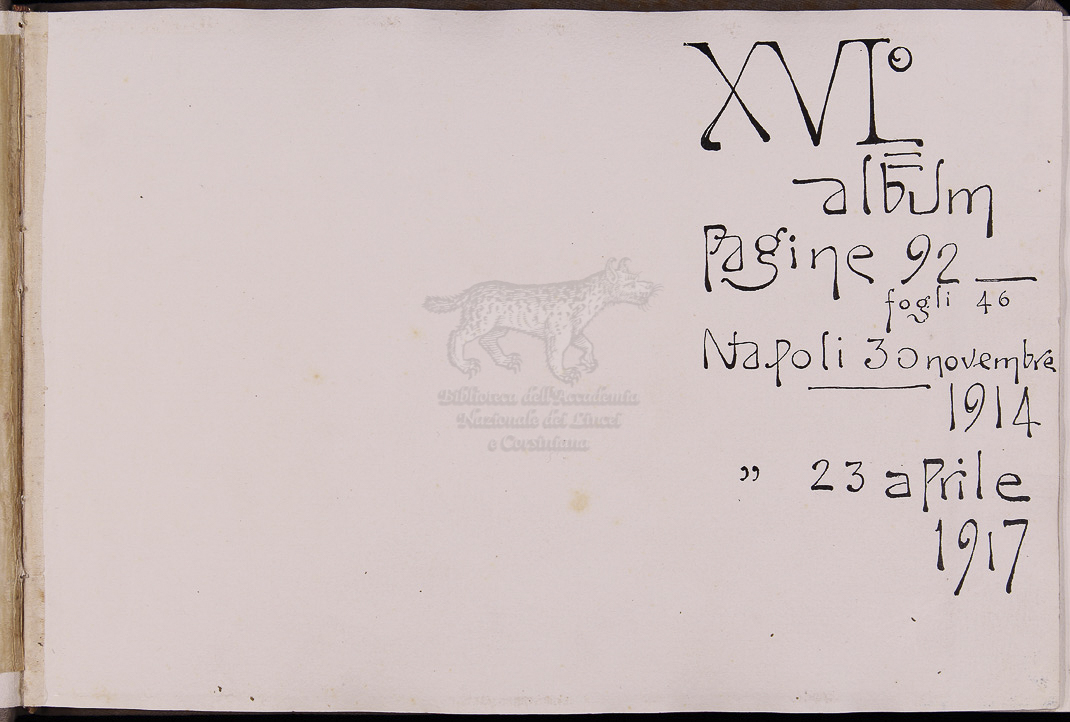 XVI°
album
Pagine 92
fogli 46
Napoli 30 novembre
1914
” 23 aprile
1917
Biblioteca dell'Accademia
Nazionale dei Lincei
e Corsiniana